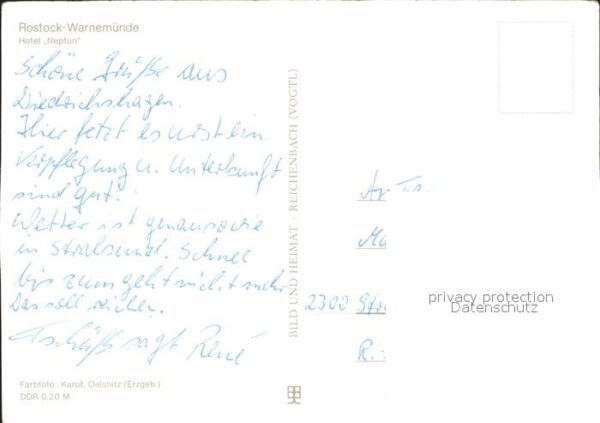 Rostock-Warnemünde
Hotel „Neptun"
Schöne Grüße aus
Diedrichshagen.
Hier fetzt es urst ein.
Verpflegung u. Unterkunft
sind gut.
Wetter ist genausowie
in Stralsund. Schnee
bis zum geht nicht mehr
Das soll reichen.
Tschüß sagt René
Farbfoto: Karpf, Oelsnitz (Erzgeb.)
DDR 0,20 M
BILD UND HEIMAT · REICHENBACH (VOGTL)
2300 Str
privacy protection
Datenschutz